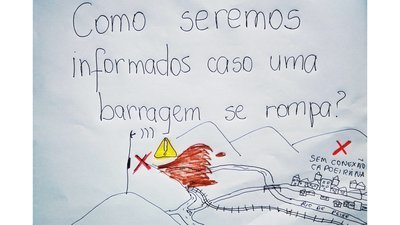 Como seremos
informados caso uma
barragem se rompa?
SEM CONEXÃO
CAPOEIRANA
RIO DO PEIXE